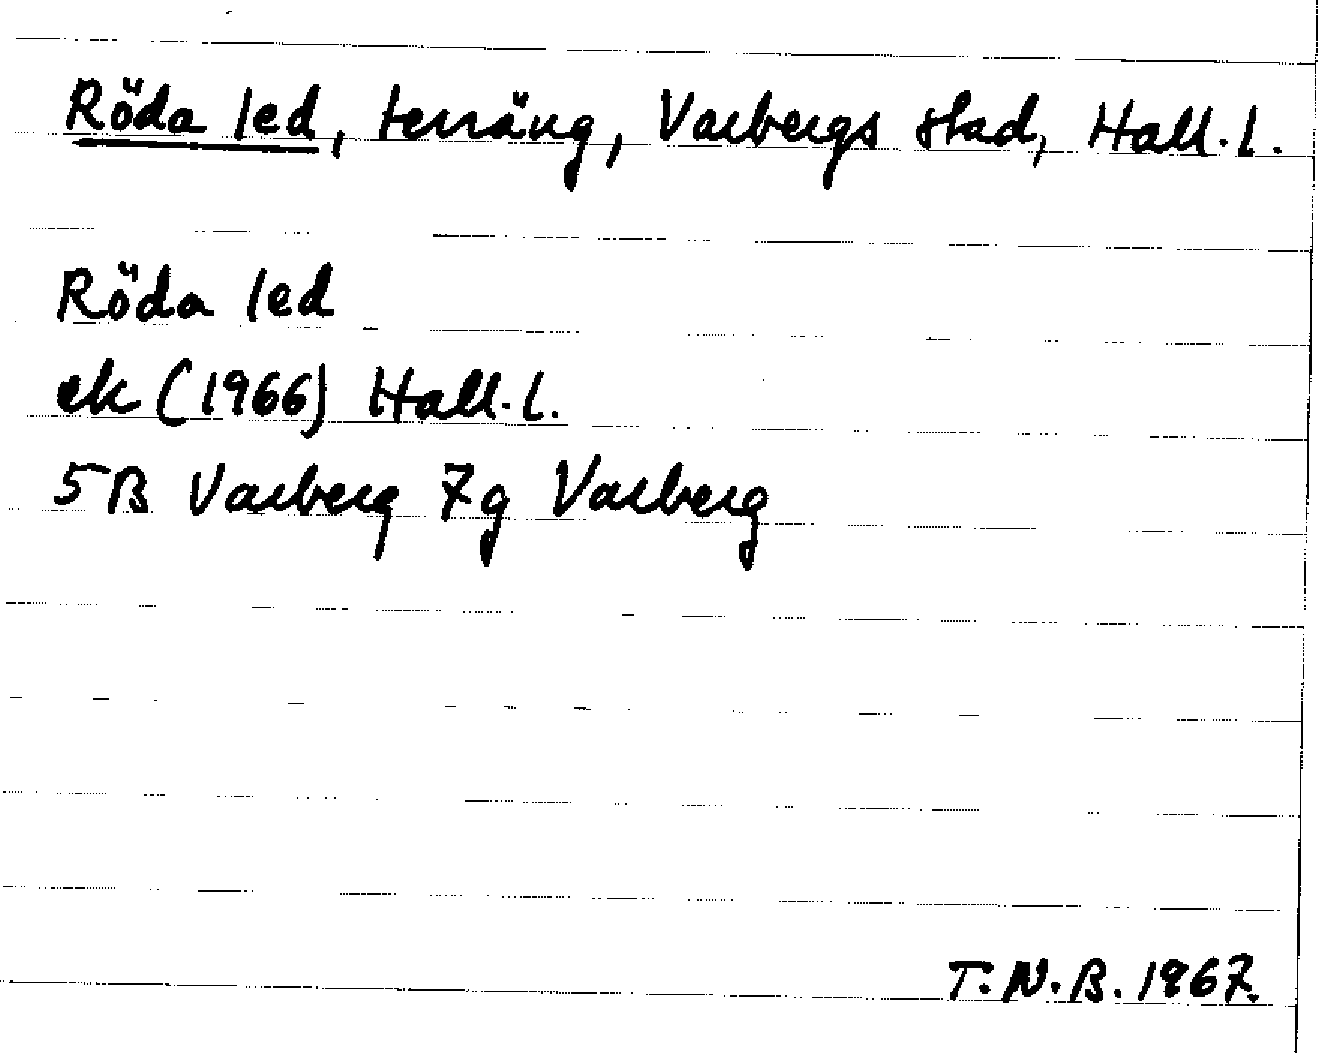 Röda led, terräng, Varbergs stad, Hall. l.
Röda led
ek (1966) Hall. l.
5B Varberg 7g Varberg
T.N.B. 1967.